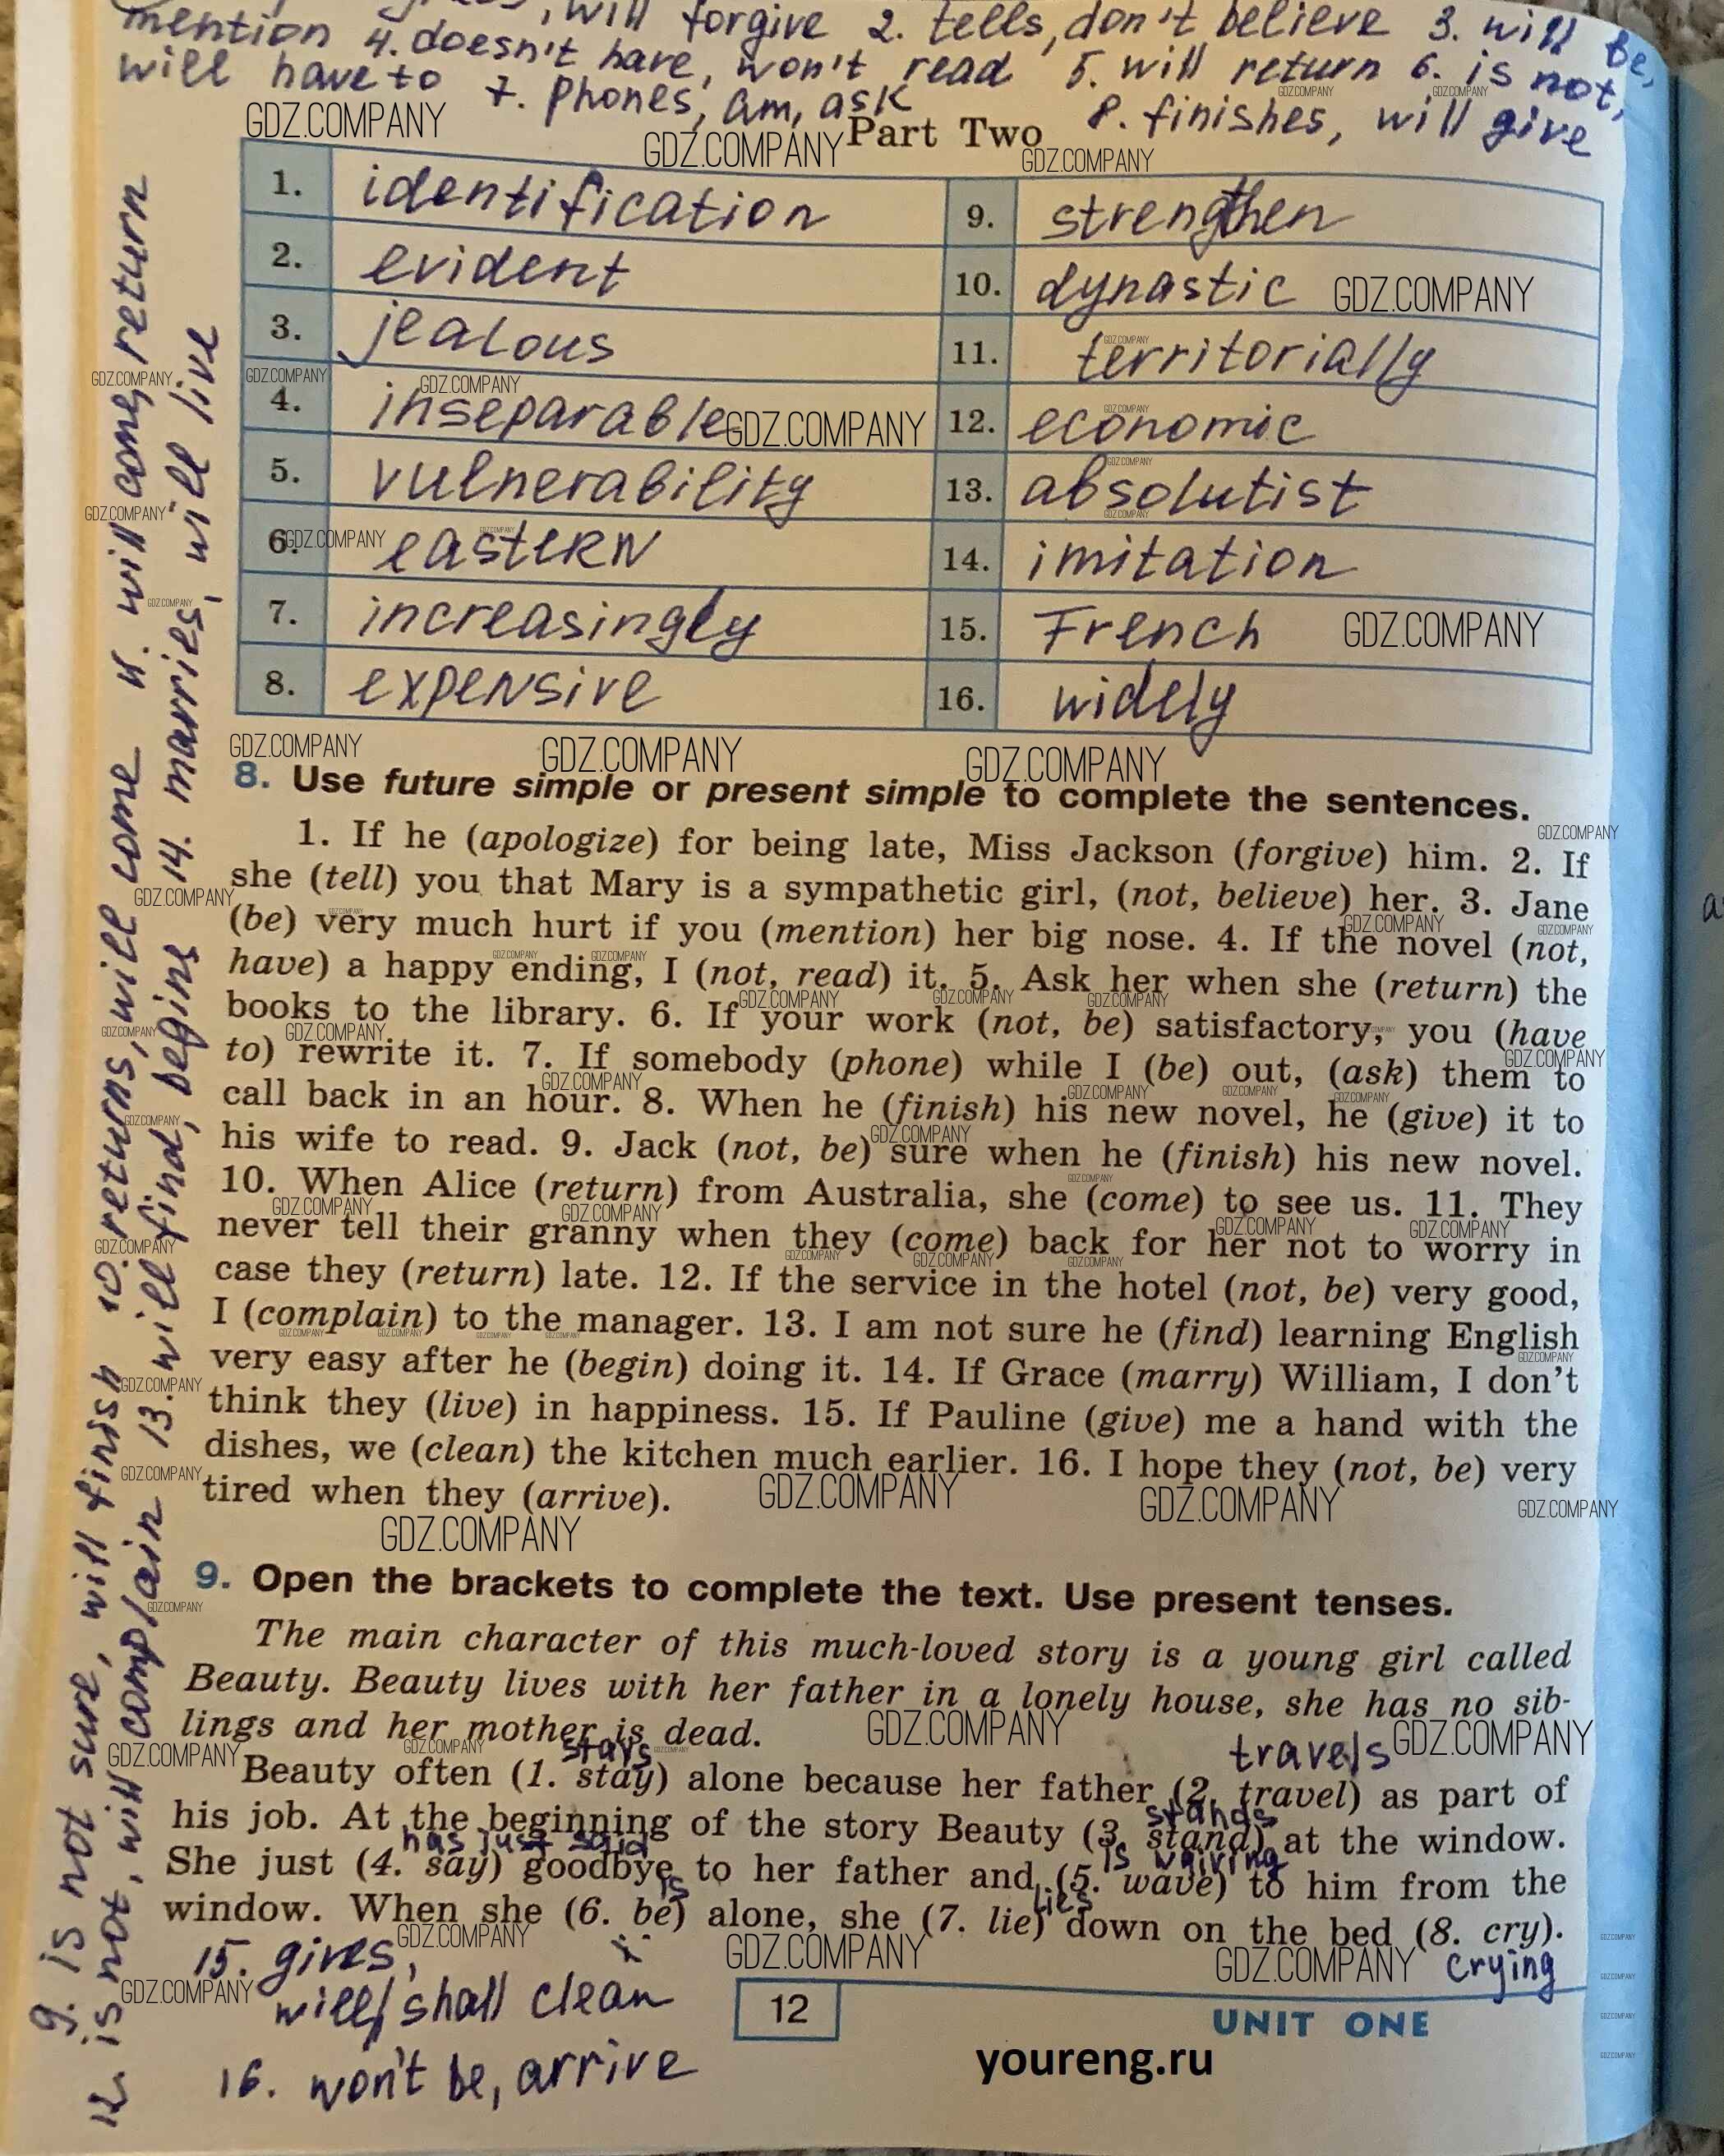 will forgive 2. tells, don't believe 3. will be,
mention 4. doesn't have, won't read 5. will return 6. is not,
will have to 7. phones, am, ask 8. finishes, will give
Part Two
1. identification
2. evident
3. jealous
4. inseparable
5. vulnerability
6. eastern
7. increasingly
8. expensive
9. strengthen
10. dynastic
11. territorially
12. economic
13. absolutist
14. imitation
15. French
16. widely
8. Use future simple or present simple to complete the sentences.
1. If he (apologize) for being late, Miss Jackson (forgive) him. 2. If
she (tell) you that Mary is a sympathetic girl, (not, believe) her. 3. Jane
(be) very much hurt if you (mention) her big nose. 4. If the novel (not,
have) a happy ending, I (not, read) it. 5. Ask her when she (return) the
books to the library. 6. If your work (not, be) satisfactory, you (have
to) rewrite it. 7. If somebody (phone) while I (be) out, (ask) them to
call back in an hour. 8. When he (finish) his new novel, he (give) it to
his wife to read. 9. Jack (not, be) sure when he (finish) his new novel.
10. When Alice (return) from Australia, she (come) to see us. 11. They
never tell their granny when they (come) back for her not to worry in
case they (return) late. 12. If the service in the hotel (not, be) very good,
I (complain) to the manager. 13. I am not sure he (find) learning English
very easy after he (begin) doing it. 14. If Grace (marry) William, I don't
think they (live) in happiness. 15. If Pauline (give) me a hand with the
dishes, we (clean) the kitchen much earlier. 16. I hope they (not, be) very
tired when they (arrive).
9. is not sure, will finish 10. returns, will come 11. will come, return
12. is not, will complain 13. will find, begins 14. marries, will live
9. Open the brackets to complete the text. Use present tenses.
The main character of this much-loved story is a young girl called
Beauty. Beauty lives with her father in a lonely house, she has no sib-
lings and her mother is dead.
stays travels
Beauty often (1. stay) alone because her father (2. travel) as part of
stands
his job. At the beginning of the story Beauty (3. stand) at the window.
has just said is waiving
She just (4. say) goodbye to her father and (5. wave) to him from the
is lies
window. When she (6. be) alone, she (7. lie) down on the bed (8. cry).
crying
15. gives,
will/shall clean
16. won't be, arrive
12
UNIT ONE
youreng.ru
GDZ.COMPANY